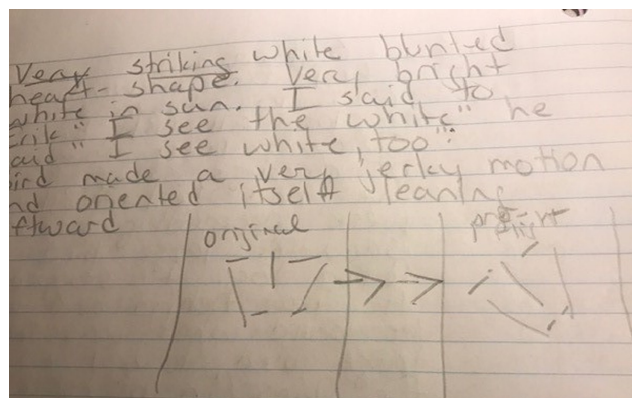 Very striking white blunted
heart-shape. Very bright
white in sun. I said to
Erik "I see the white" he
aid "I see white, too".
ird made a very jerky motion
nd oriented itself leaning
ftward
original